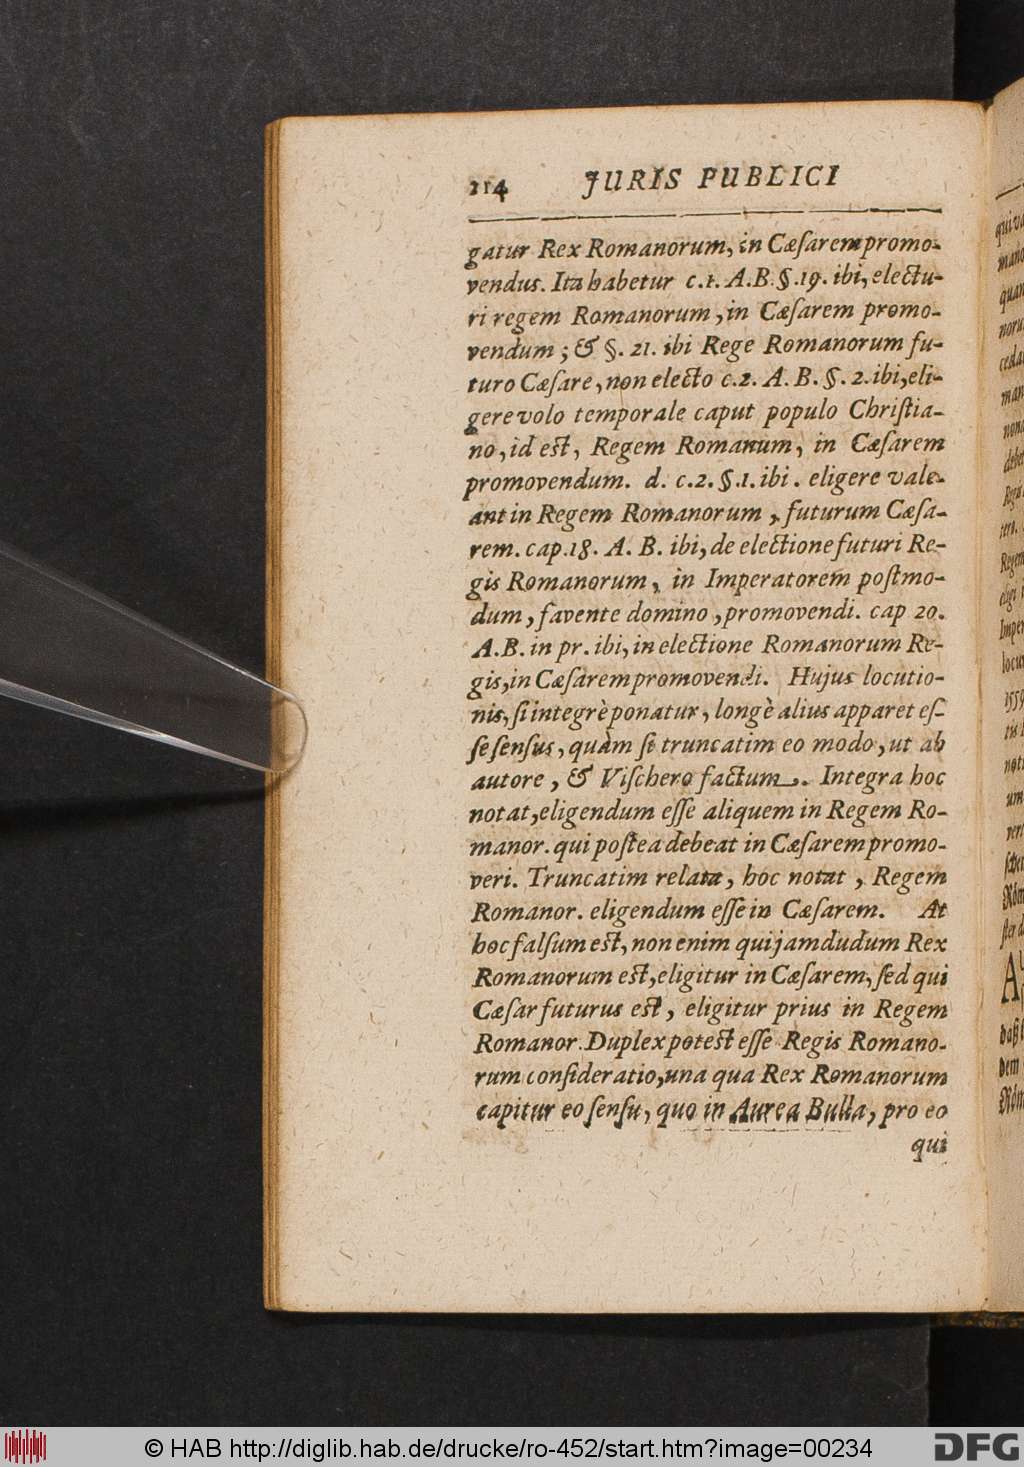 214 JURIS PUBLICI
gatur Rex Romanorum, in Cæſarem promo-
vendus. Ita habetur c. 1. A.B. §. 19. ibi, electu-
ri regem Romanorum, in Cæſarem promo-
vendum; & §. 21. ibi Rege Romanorum fu-
turo Cæſare, non electo c. 2. A. B. §. 2. ibi, eli-
gere volo temporale caput populo Chriſtia-
no, id est, Regem Romanum, in Cæſarem
promovendum. d. c. 2. §. 1. ibi. eligere vale-
ant in Regem Romanorum, futurum Cæſa-
rem. cap. 18. A. B. ibi, de electione futuri Re-
gis Romanorum, in Imperatorem poſtmo-
dum, favente domino, promovendi. cap 20.
A.B. in pr. ibi, in electione Romanorum Re-
gis, in Cæſarem promovendi. Hujus locutio-
nis, ſi integrè ponatur, longè alius apparet eſ-
ſe ſenſus, quàm ſi truncatim eo modo, ut ab
autore, & Viſchero factum. Integra hoc
notat, eligendum eſſe aliquem in Regem Ro-
manor. qui poſtea debeat in Cæſarem promo-
veri. Truncatim relata, hoc notat, Regem
Romanor. eligendum eſſe in Cæſarem. At
hoc falſum est, non enim qui jamdudum Rex
Romanorum est, eligitur in Cæſarem, ſed qui
Cæſar futurus est, eligitur prius in Regem
Romanor. Duplex potest eſſe Regis Romano-
rum conſideratio, una qua Rex Romanorum
capitur eo ſenſu, quo in Aurea Bulla, pro eo
qui
© HAB http://diglib.hab.de/drucke/ro-452/start.htm?image=00234
DFG